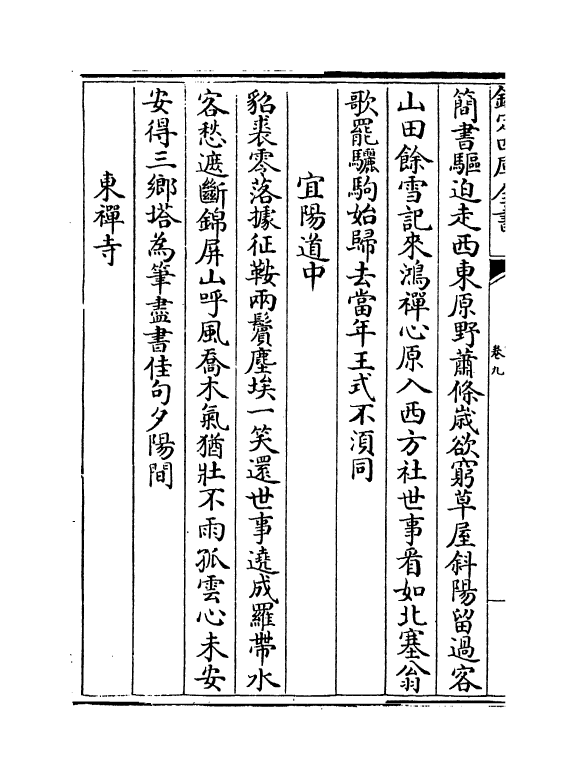 欽定四庫全書
卷九
簡書驅迫走西東原野蕭條歳欲窮草屋斜陽留過客
山田餘雪記來鴻禪心原入西方社世事看如北塞翁
歌罷驪駒始歸去當年王式不湏同
宜陽道中
貂裘零落據征鞍兩鬢塵埃一笑還世事遶成羅帶水
客愁遮斷錦屏山呼風喬木氣猶壯不雨孤雲心未安
安得三鄉塔為筆盡書佳句夕陽間
東禪寺